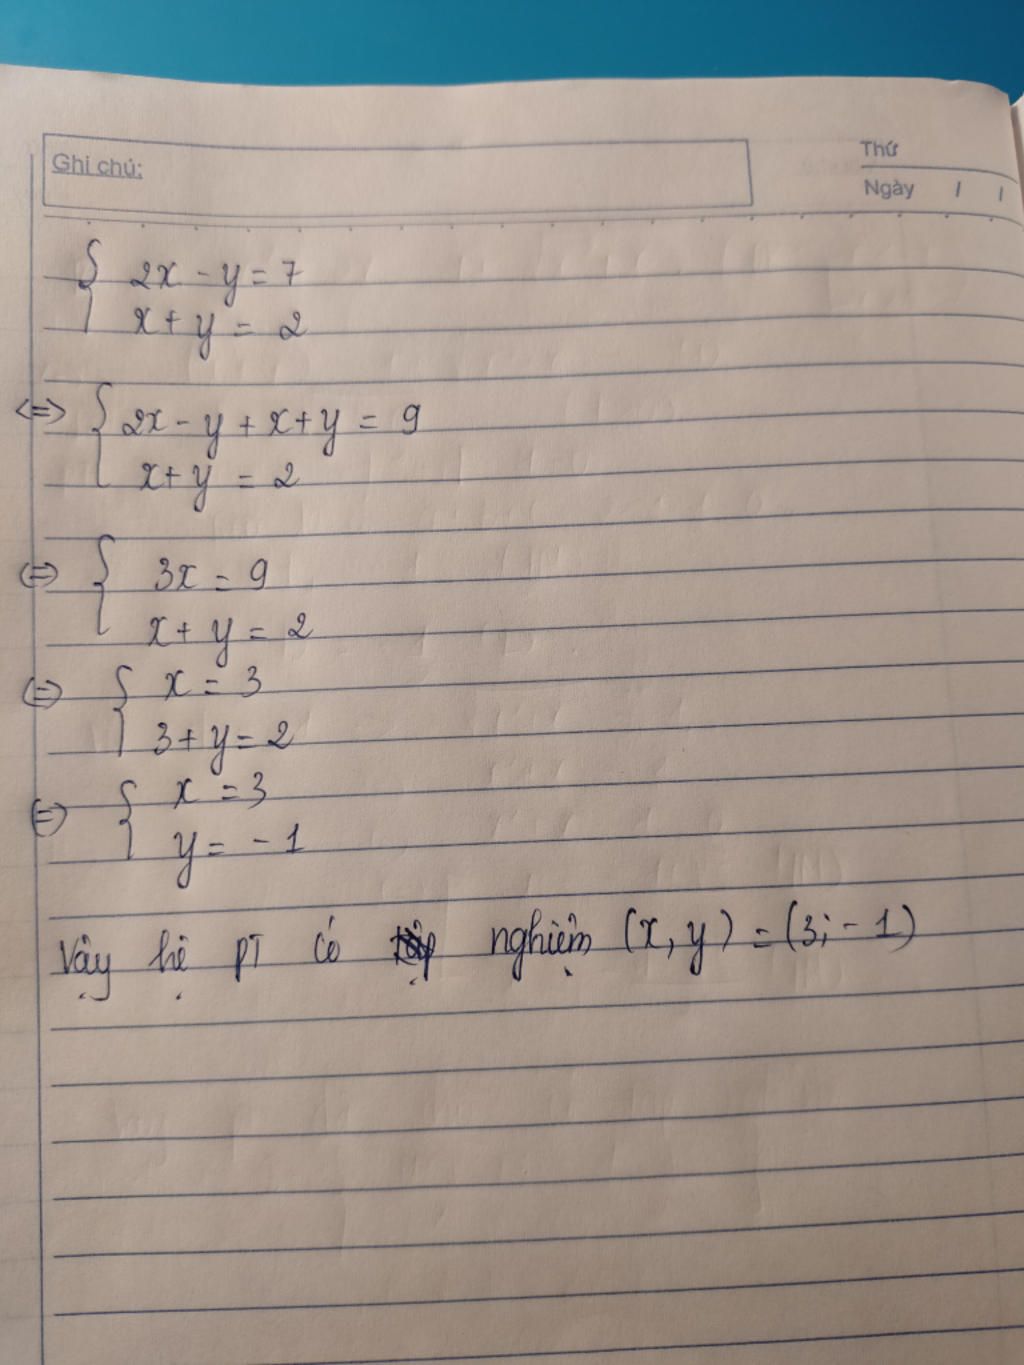 Ghi chú:
Thứ
Ngày / /
{ 2x - y = 7
x + y = 2
<=> { 2x - y + x + y = 9
x + y = 2
<=> { 3x = 9
x + y = 2
<=> { x = 3
3 + y = 2
<=> { x = 3
y = -1
Vậy hệ PT có nghiệm (x, y) = (3; -1)